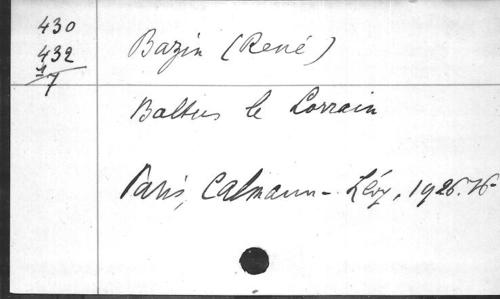 430
432
17
Bazin (René)
Baltus le Lorrain
Paris, Calmann-Lévy, 1926.